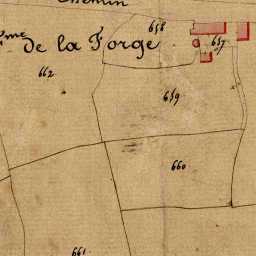 Chemin
658
de la Forge
657
662
659
660
661